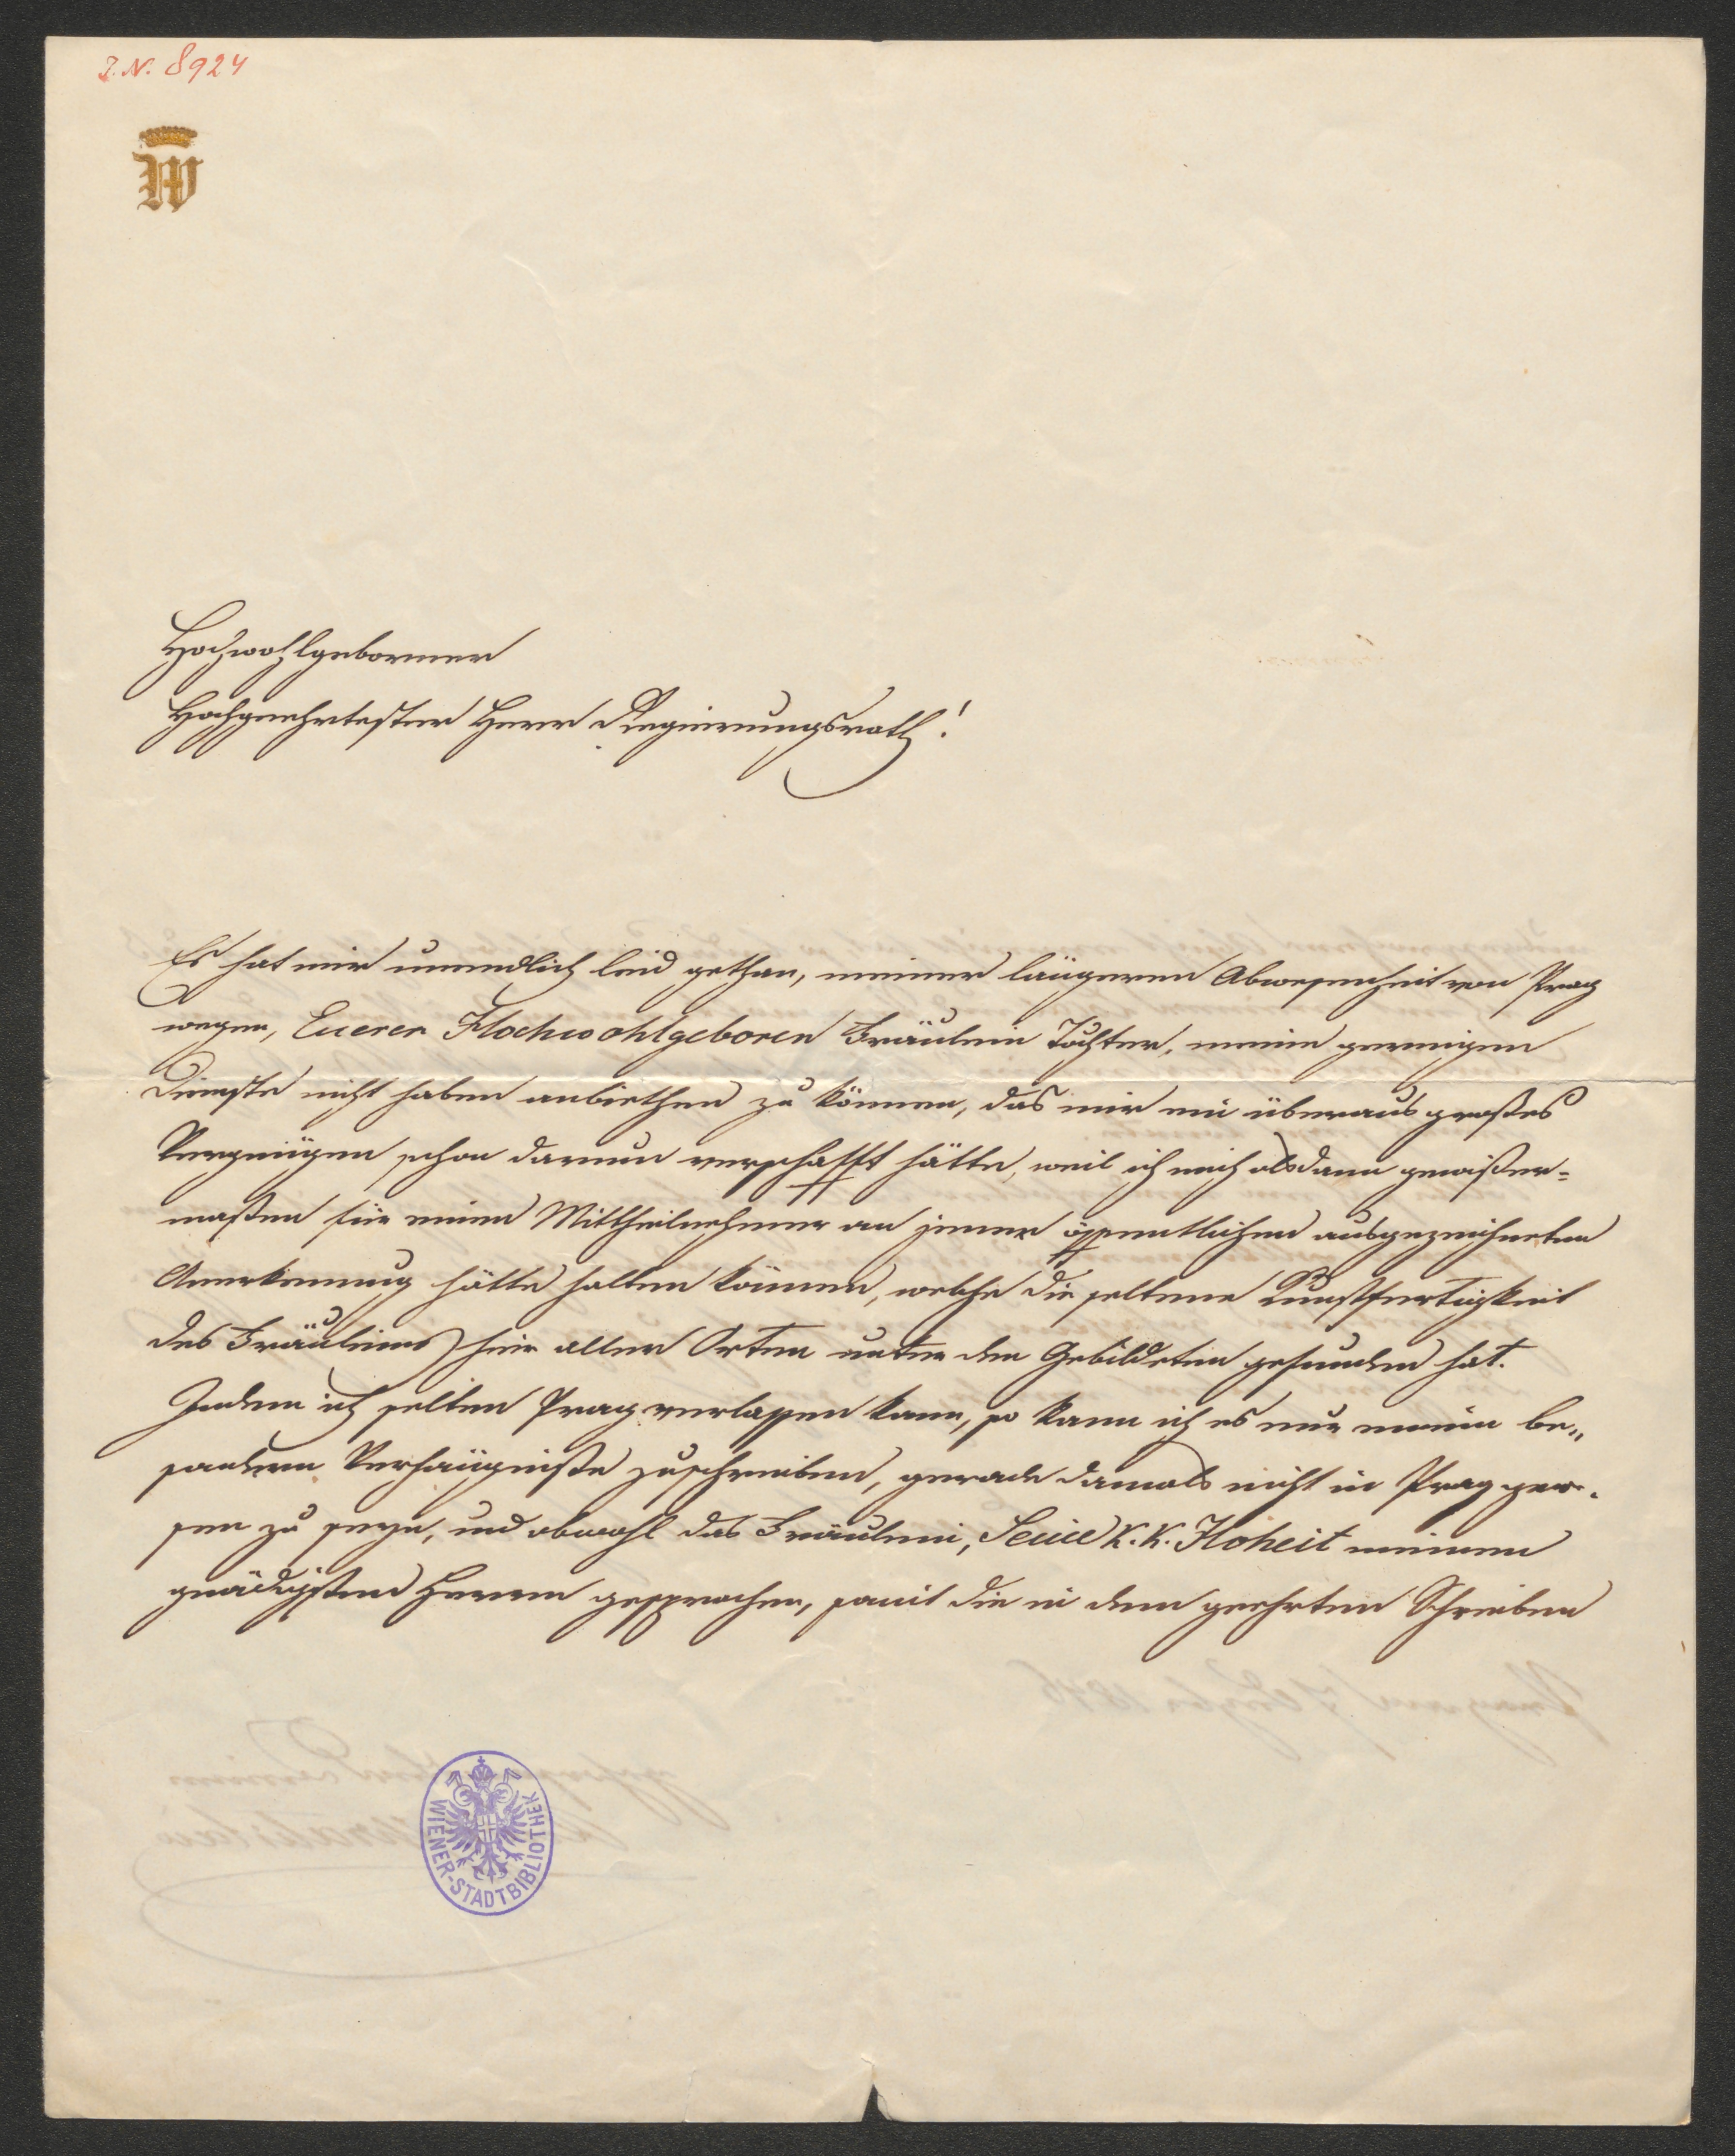 I.N. 8924
W
Hochwohlgeborner
Hochgeehrtester Herr Regierungsrath!
Es hat mir unendlich leid gethan, meiner längeren Abwesenheit von Prag
wegen, Euerer Hochwohlgeboren Fräulein Tochter, meine geringen
Dienste nicht haben anbiethen zu können, das mir ein überaus großes
Vergnügen schon darum verschafft hätte, weil ich mich alsdann gewißer=
maßen für einen Mittheilnehmer an jener öffentlichen ausgezeichneten
Anerkennung hätte halten können, welche die seltene Kunstfertigkeit
des Fräuleins hier aller Orten unter den Gebildeten gefunden hat.
Indem ich selten Prag verlassen kann, so kann ich es nur meinem be„
sondern Verhängniße zuschreiben, gerade damals nicht in Prag gewe„
sen zu seyn, und obwohl das Fräulein, Seine K. K. Hoheit meinen
gnädigsten Herrn gesprochen, somit die in dem geehrten Schreiben
WIENER-STADTBIBLIOTHEK